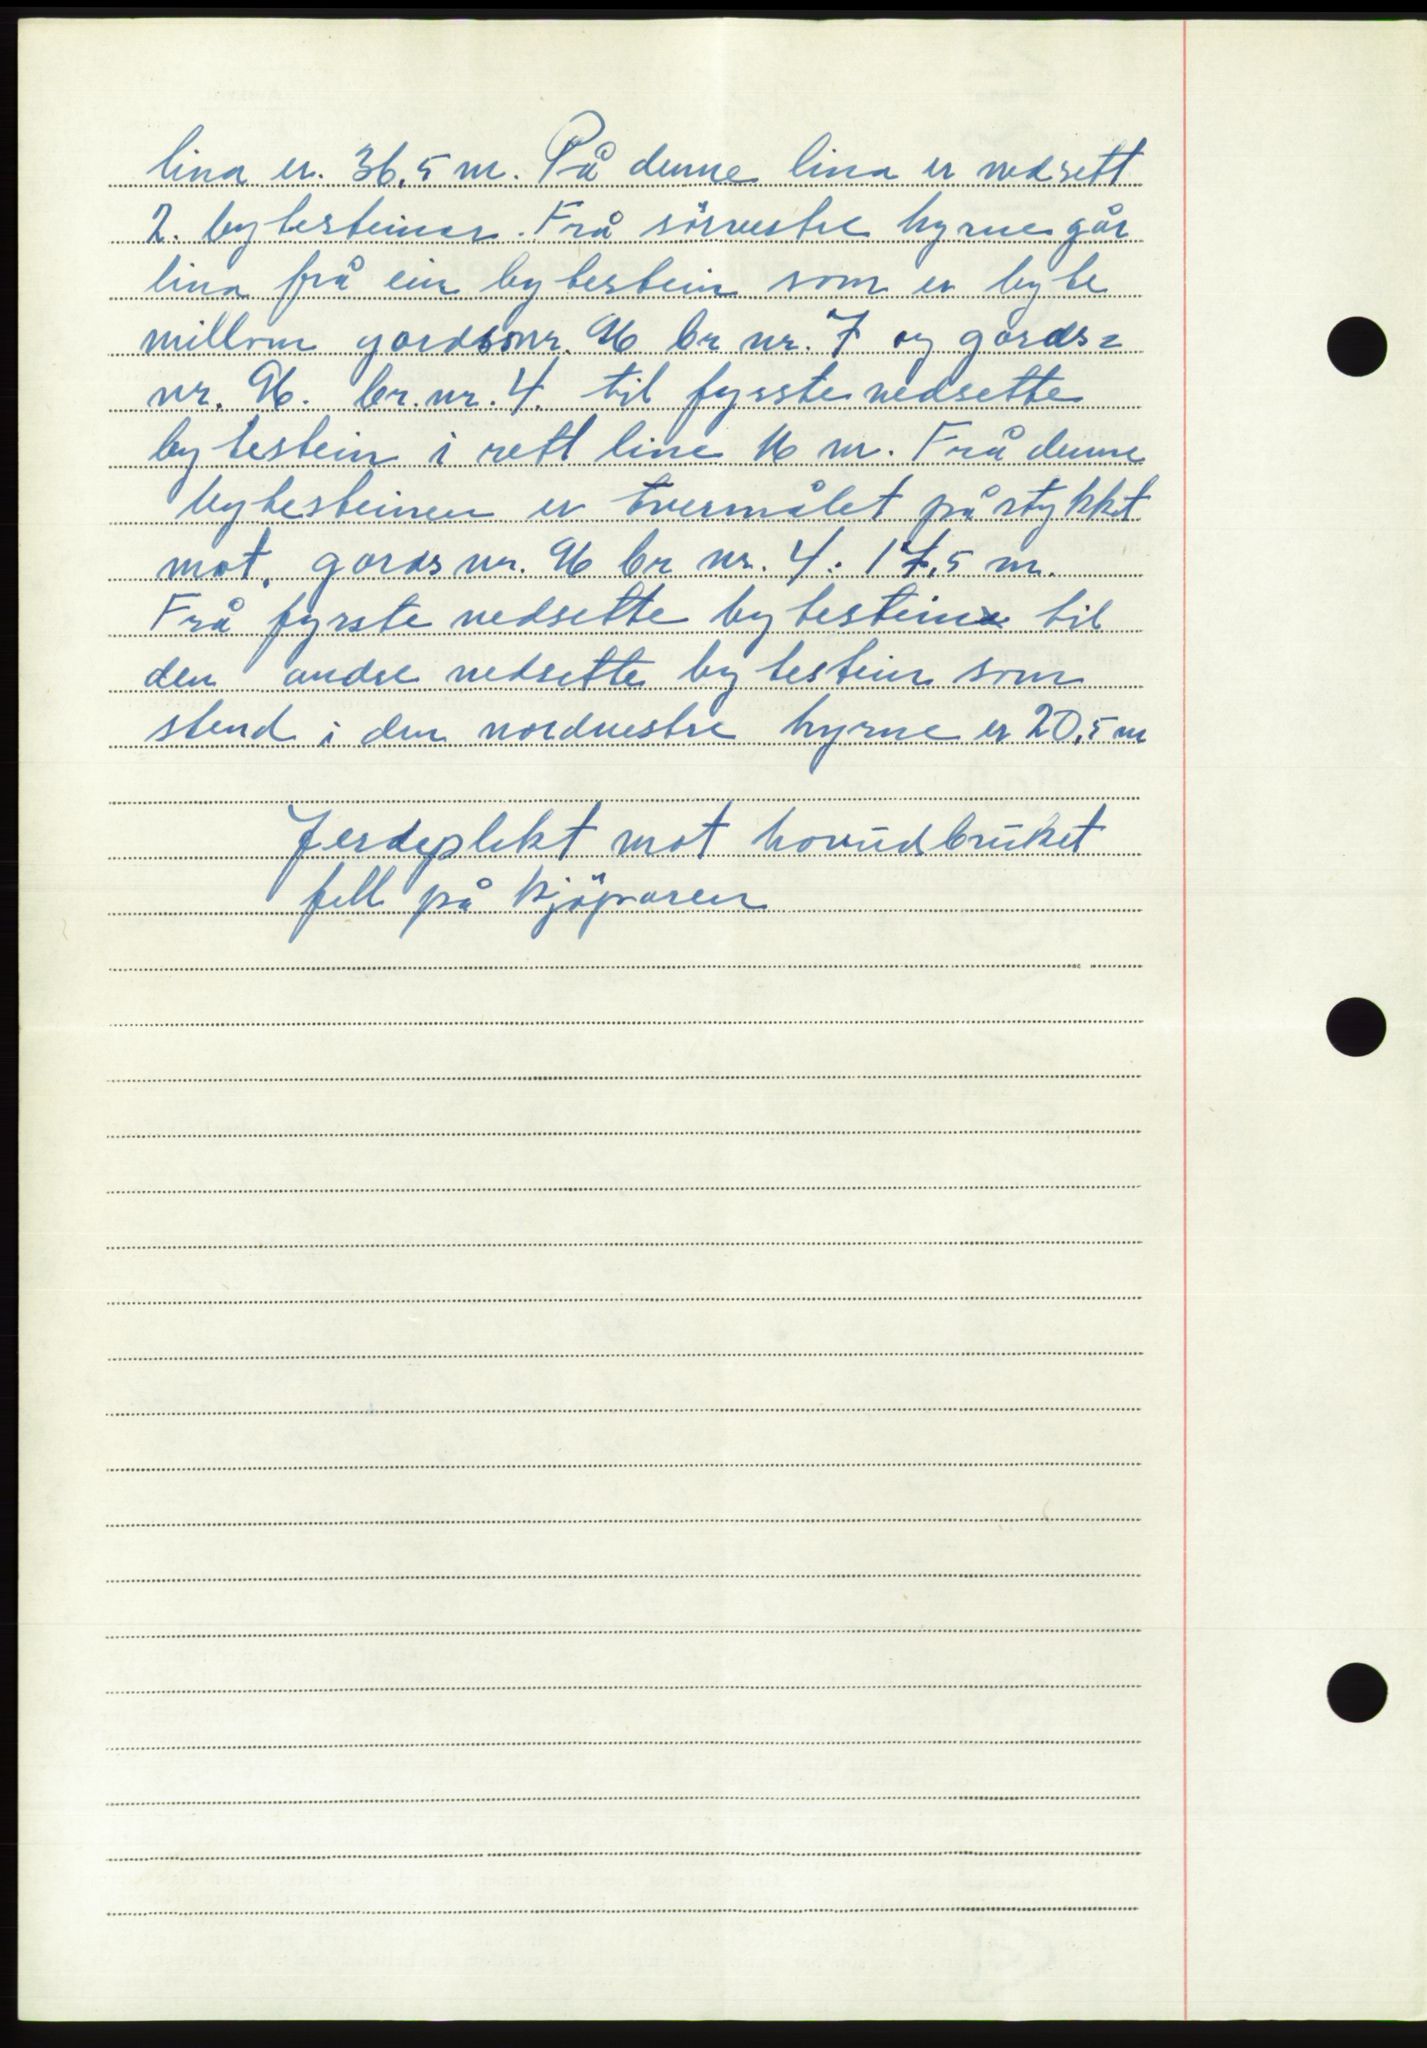 lina er. 36,5 m. På denne lina er nedsett
2. bytesteinar. Frå sörvestre hyrne går
lina frå ein bytestein som er byte
millom gardsnr. 96 br nr. 7 og gards=
nr. 96. br. nr. 4. til fyrste nedsette
bytestein i rett line 16 m. Frå denne
bytesteinen er tvermålet på stykket
mot. gards nr. 96 br nr. 4: 17,5 m.
Frå fyrste nedsette bytestein til
den andre nedsette bytestein som
stend i den nordvestre hyrne er 20,5 m
Jerdeplikt mot hovudbruket
fell på kjöparen